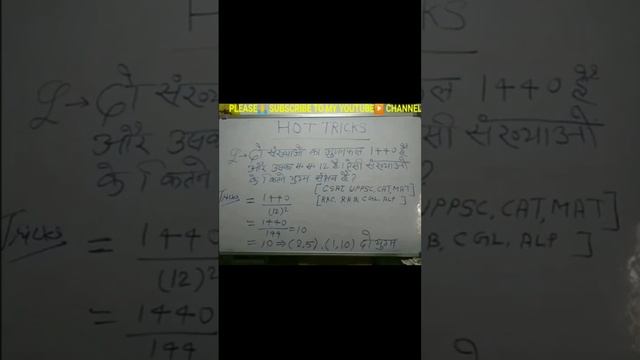 PLEASE SUBSCRIBE TO MY YOUTUBE CHANNEL
HOT TRICKS
Q→ दो संख्याओं का गुणनफल 1440 है
और उसका म॰ स॰ 12 है। ऐसी संख्याओं
के कितने युग्म संभव है?
[CSAT, UPPSC, CAT, MAT]
[RRC, RRB, CGL, ALP]
Tricks = 1440/(12)²
= 1440/144 = 10
= 10 ⇒ (2,5), (1,10) दो युग्म